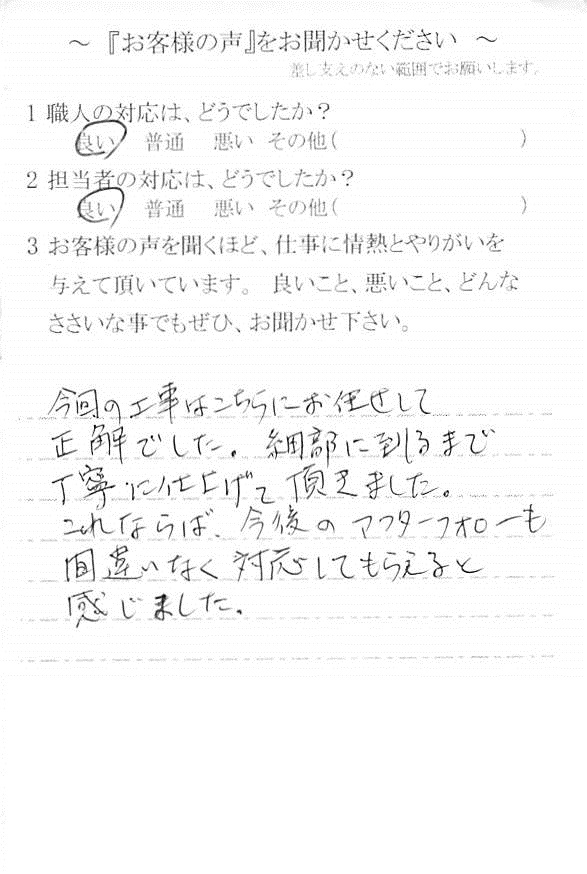 ～『お客様の声』をお聞かせください ～
差し支えのない範囲でお願いします。
1 職人の対応は、どうでしたか？
良い 普通 悪い その他( )
2 担当者の対応は、どうでしたか？
良い 普通 悪い その他( )
3 お客様の声を聞くほど、仕事に情熱とやりがいを
与えて頂いています。 良いこと、悪いこと、どんな
ささいな事でもぜひ、お聞かせ下さい。
今回の工事はこちらにお任せして
正解でした。細部に到るまで
丁寧に仕上げて頂きました。
これならば、今後のアフターフォローも
間違いなく対応してもらえると
感じました。